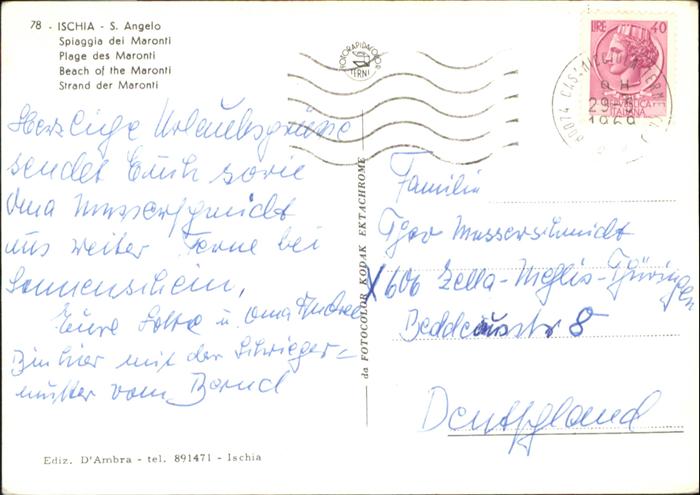 78 - ISCHIA - S. Angelo
Spiaggia dei Maronti
Plage des Maronti
Beach of the Maronti
Strand der Maronti
FOTORAPIDACOLOR
TERNI
LIRE 40
REPUBBLICA
ITALIANA
80074 CASAMICCIOLA TERME
29-5
1969
Herzliche Urlaubsgrüsse
sendet Euch sowie
Oma Messerschmidt
aus weiter Ferne bei
Sonnenschein,
Eure u. Oma
Bin hier mit der Schwieger=
mutter vom Bernd
da FOTOCOLOR KODAK EKTACHROME
Familie
Messerschmidt
X 606 Zella-Mehlis-Thüringen
8
Deutschland
Ediz. D'Ambra - tel. 891471 - Ischia